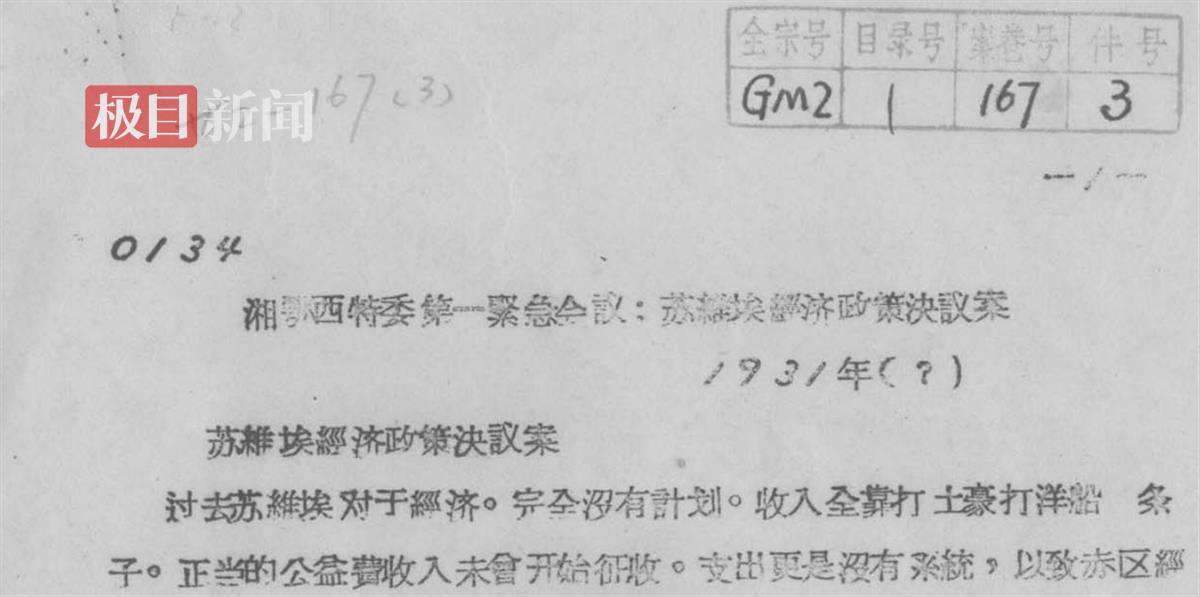 全宗号 目录号 案卷号 件号
GM2 1 167 3
极目新闻
167(3)
-1-
0134
湘鄂西特委第一緊急会議：苏維埃經济政策决議案
1931年(?)
苏維埃經济政策决議案
过去苏維埃对于經济。完全沒有計划。收入全靠打土豪打洋船 条
子。正当的公益費收入未曾开始征收。支出更是沒有系統，以致赤区經